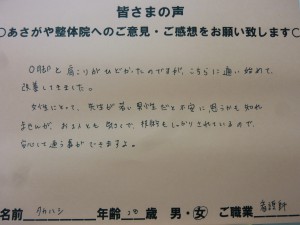 皆さまの声
○あさがや整体院へのご意見・ご感想をお願い致します○
O脚と肩こりがひどかったのですが、こちらに通い始めて、
改善してきました。
女性にとって、先生が若い男性だと不安に思うかも知れ
ませんが、お二人とも気さくで、技術もしっかりされているので、
安心して通う事ができますよ。
名前 タカハシ 年齢 28 歳 男・女 ご職業 看護師